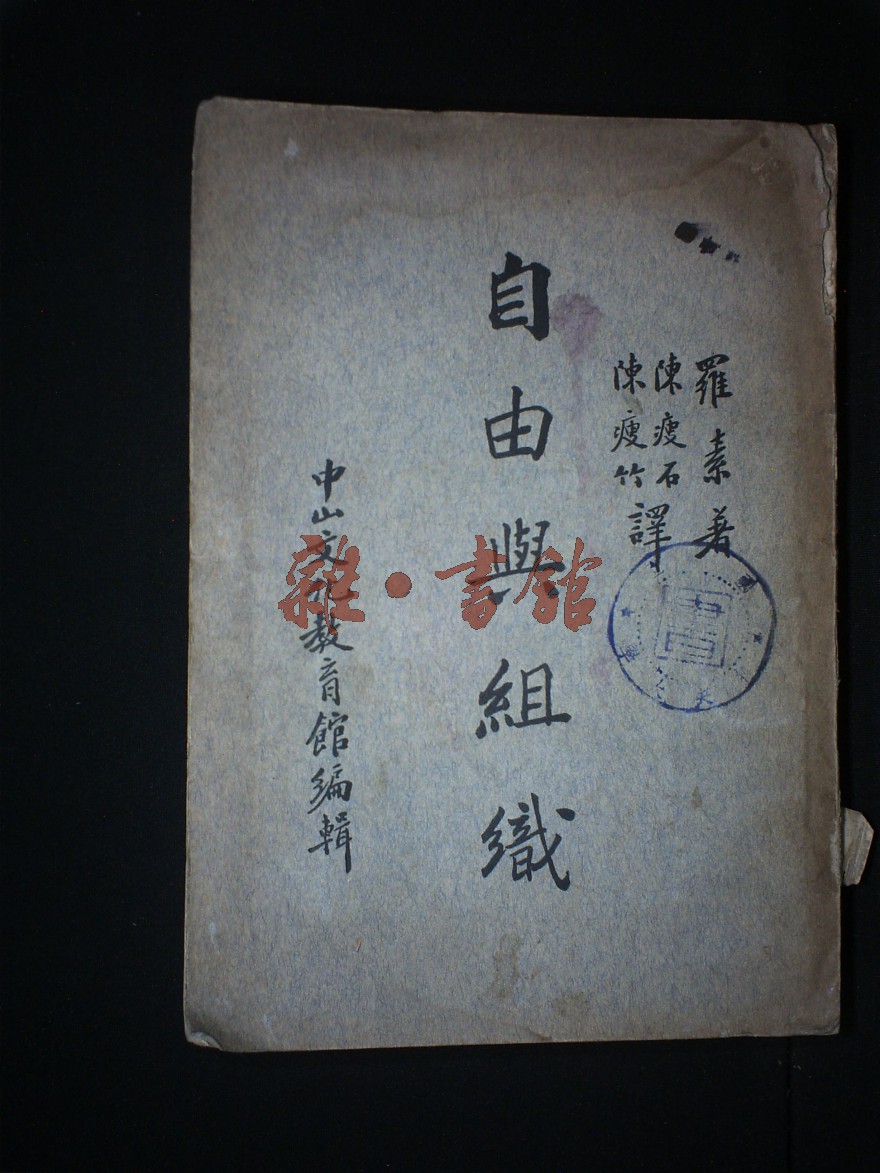 羅素著
陳瘦石
陳瘦竹
譯
自由與組織
中山文化教育館編輯
雜·書館